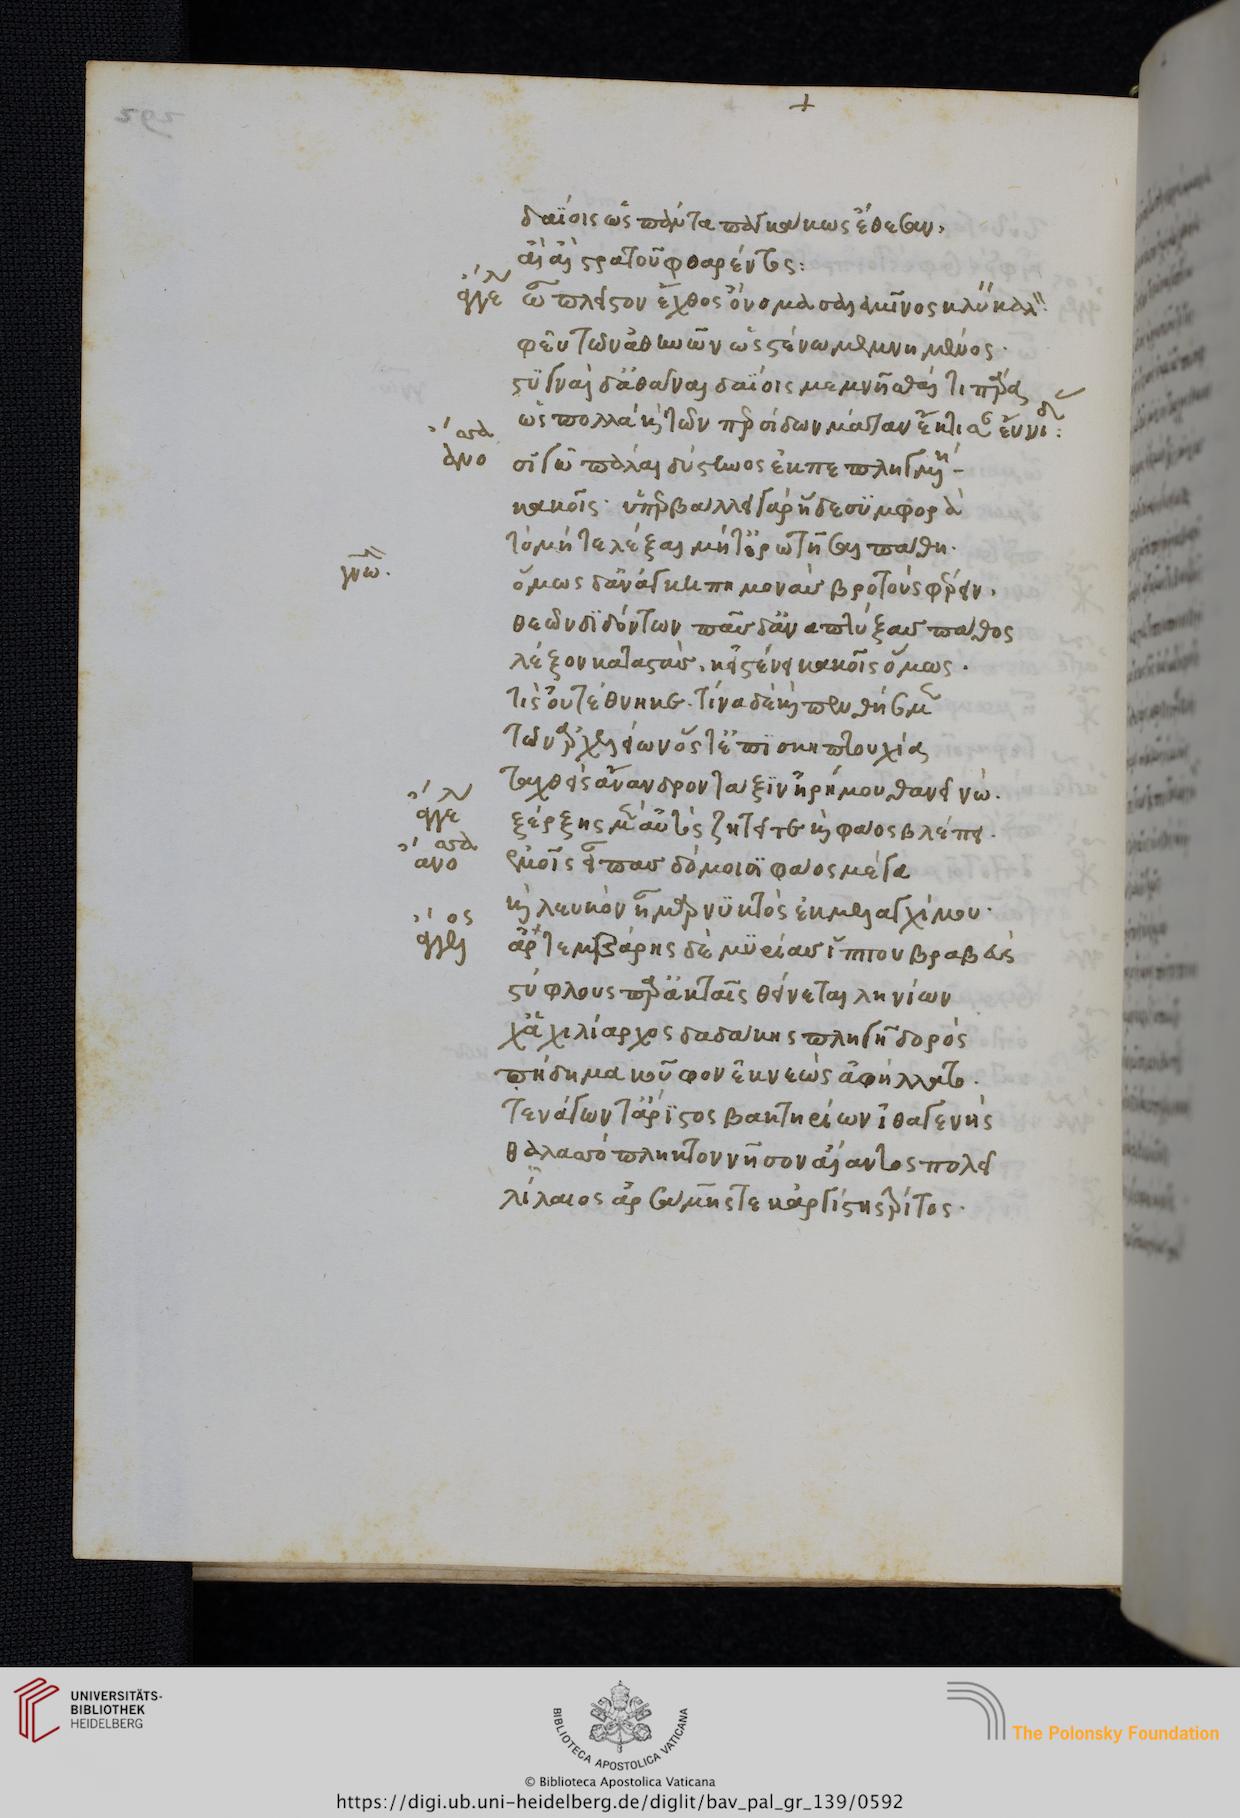 292
+
δαΐοις ὡς πάντα παγκάκως ἔθεσαν,
αἲ αἲ στρατοῦ φθαρέντος:
ἄγγελ ὦ πλεῖστον ἔχθος ὄνομα σαλαμῖνος κλύειν
φεῦ τῶν ἀθηνῶν ὡς στένω μεμνημένος·
στυγναὶ δ' ἀθᾶναι δαΐοις μεμνῆσθαί τι πάρα
ὡς πολλὰς καὶ τῶν περσίδων μάταν ἔκτισαν εὔνιδας:
ἄνοσσα σιγῶ πάλαι δύστηνος ἐκπεπληγμένη
κακοῖς· ὑπερβάλλει γὰρ ἥδε συμφορὰ
τὸ μήτε λέξαι μήτ' ἐρωτῆσαι πάθη·
γνω. ὅμως δ' ἀνάγκη πημονὰς βροτοῖς φέρειν,
θεῶν διδόντων πᾶν δ' ἀναπτύξας πάθος
λέξον καταστάς, κεἰ στένεις κακοῖς ὅμως·
τίς οὐ τέθνηκε· τίνα δὲ καὶ πενθήσομεν
τῶν ἀρχελείων ὅς τ' ἐπὶ σκηπτουχίᾳ
ταχθεὶς ἄνανδρον τάξιν ἠρήμου θανών·
ἄγγελ ξέρξης μὲν αὐτὸς ζῆ τε καὶ φάος βλέπει·
ἄνοσσα ἐμοῖς εἶπας δόμοισι φάος μέγα
καὶ λευκὸν ἦμαρ νυκτὸς ἐκ μελαγχίμου·
ἄγγελος ἀρτεμβάρης δὲ μυρίας ἵππου βραβεὺς
στύφλους παρ' ἀκτὰς θείνεται ληνίων
χὠ χιλίαρχος δαδάκης πληγῇ δορὸς
πήδημα κοῦφον ἐκ νεὼς ἀφήλλατο·
τενάγων τ' ἄριστος βακτρίων ἰθαγενὴς
θαλασσόπληκτον νῆσον αἴαντος πολεῖ
λίλαιος ἀρσάμης τε κἀργίστης τρίτος·
UNIVERSITÄTS-
BIBLIOTHEK
HEIDELBERG
BIBLIOTECA APOSTOLICA VATICANA
The Polonsky Foundation
© Biblioteca Apostolica Vaticana
https://digi.ub.uni-heidelberg.de/diglit/bav_pal_gr_139/0592